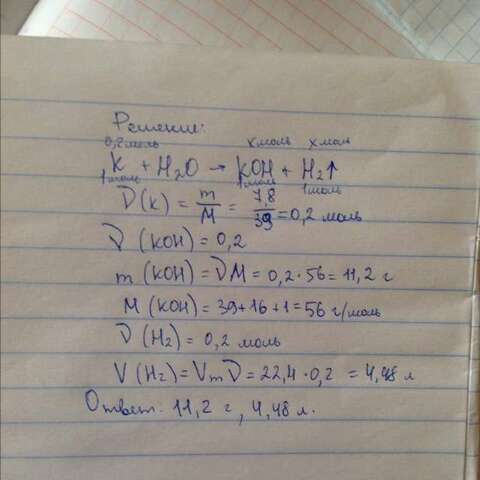 Решение:
0,2 моль x моль x моль
K + H₂O → KOH + H₂↑
1 моль 1 моль 1 моль
ν(K) = m/M = 7,8/39 = 0,2 моль
ν(KOH) = 0,2
m(KOH) = νM = 0,2·56 = 11,2 г
M(KOH) = 39+16+1 = 56 г/моль
ν(H₂) = 0,2 моль
V(H₂) = Vmν = 22,4·0,2 = 4,48 л
Ответ: 11,2 г, 4,48 л.